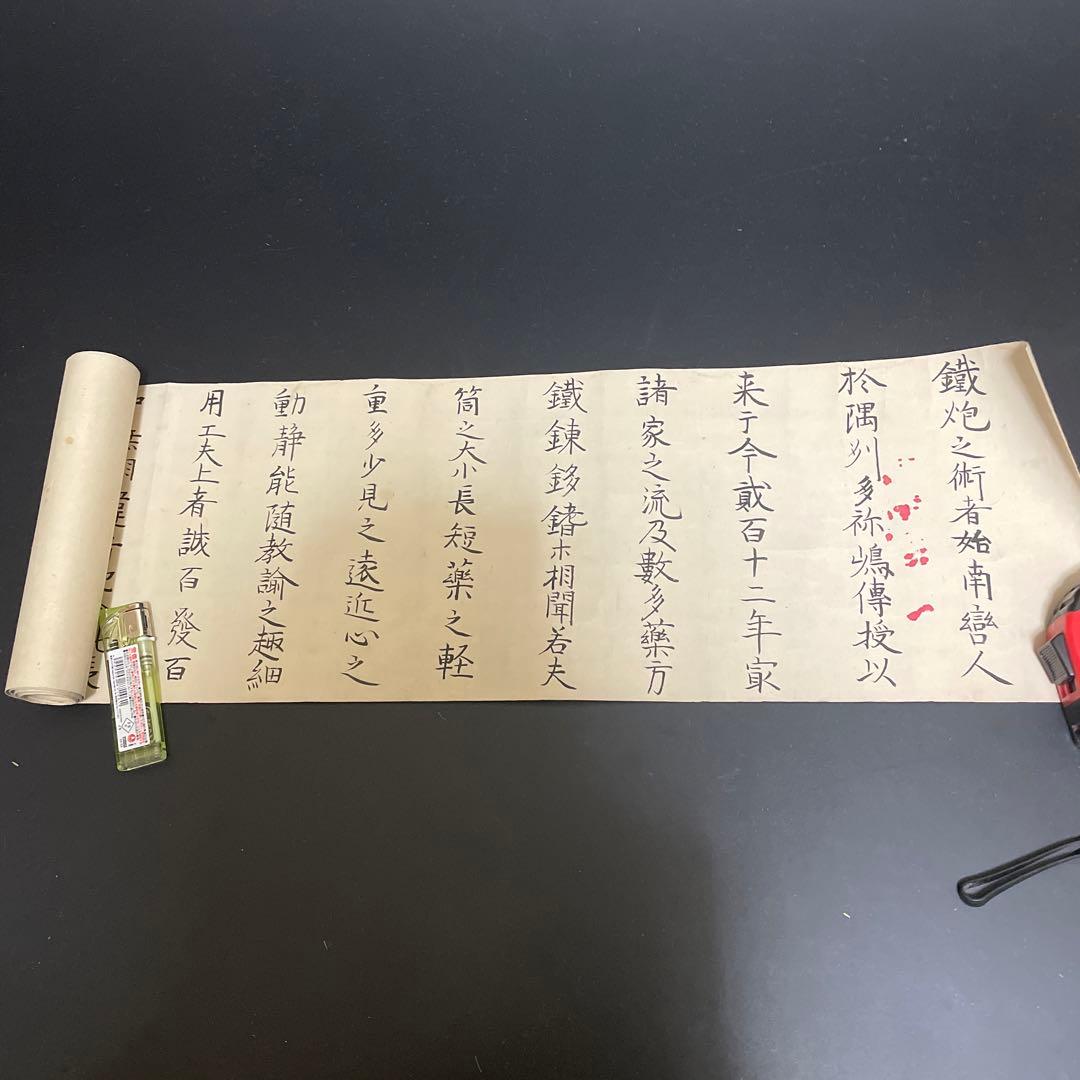 鐵炮之術者始南蠻人
於隅州多祢嶋傳授以
来于今貳百十二年家
諸家之流及數多藥方
鐵錬鈠鍺木相聞若夫
筒之大小長短藥之軽
重多少見之遠近心之
動静能随教諭之趣細
用工夫上者誠百發百